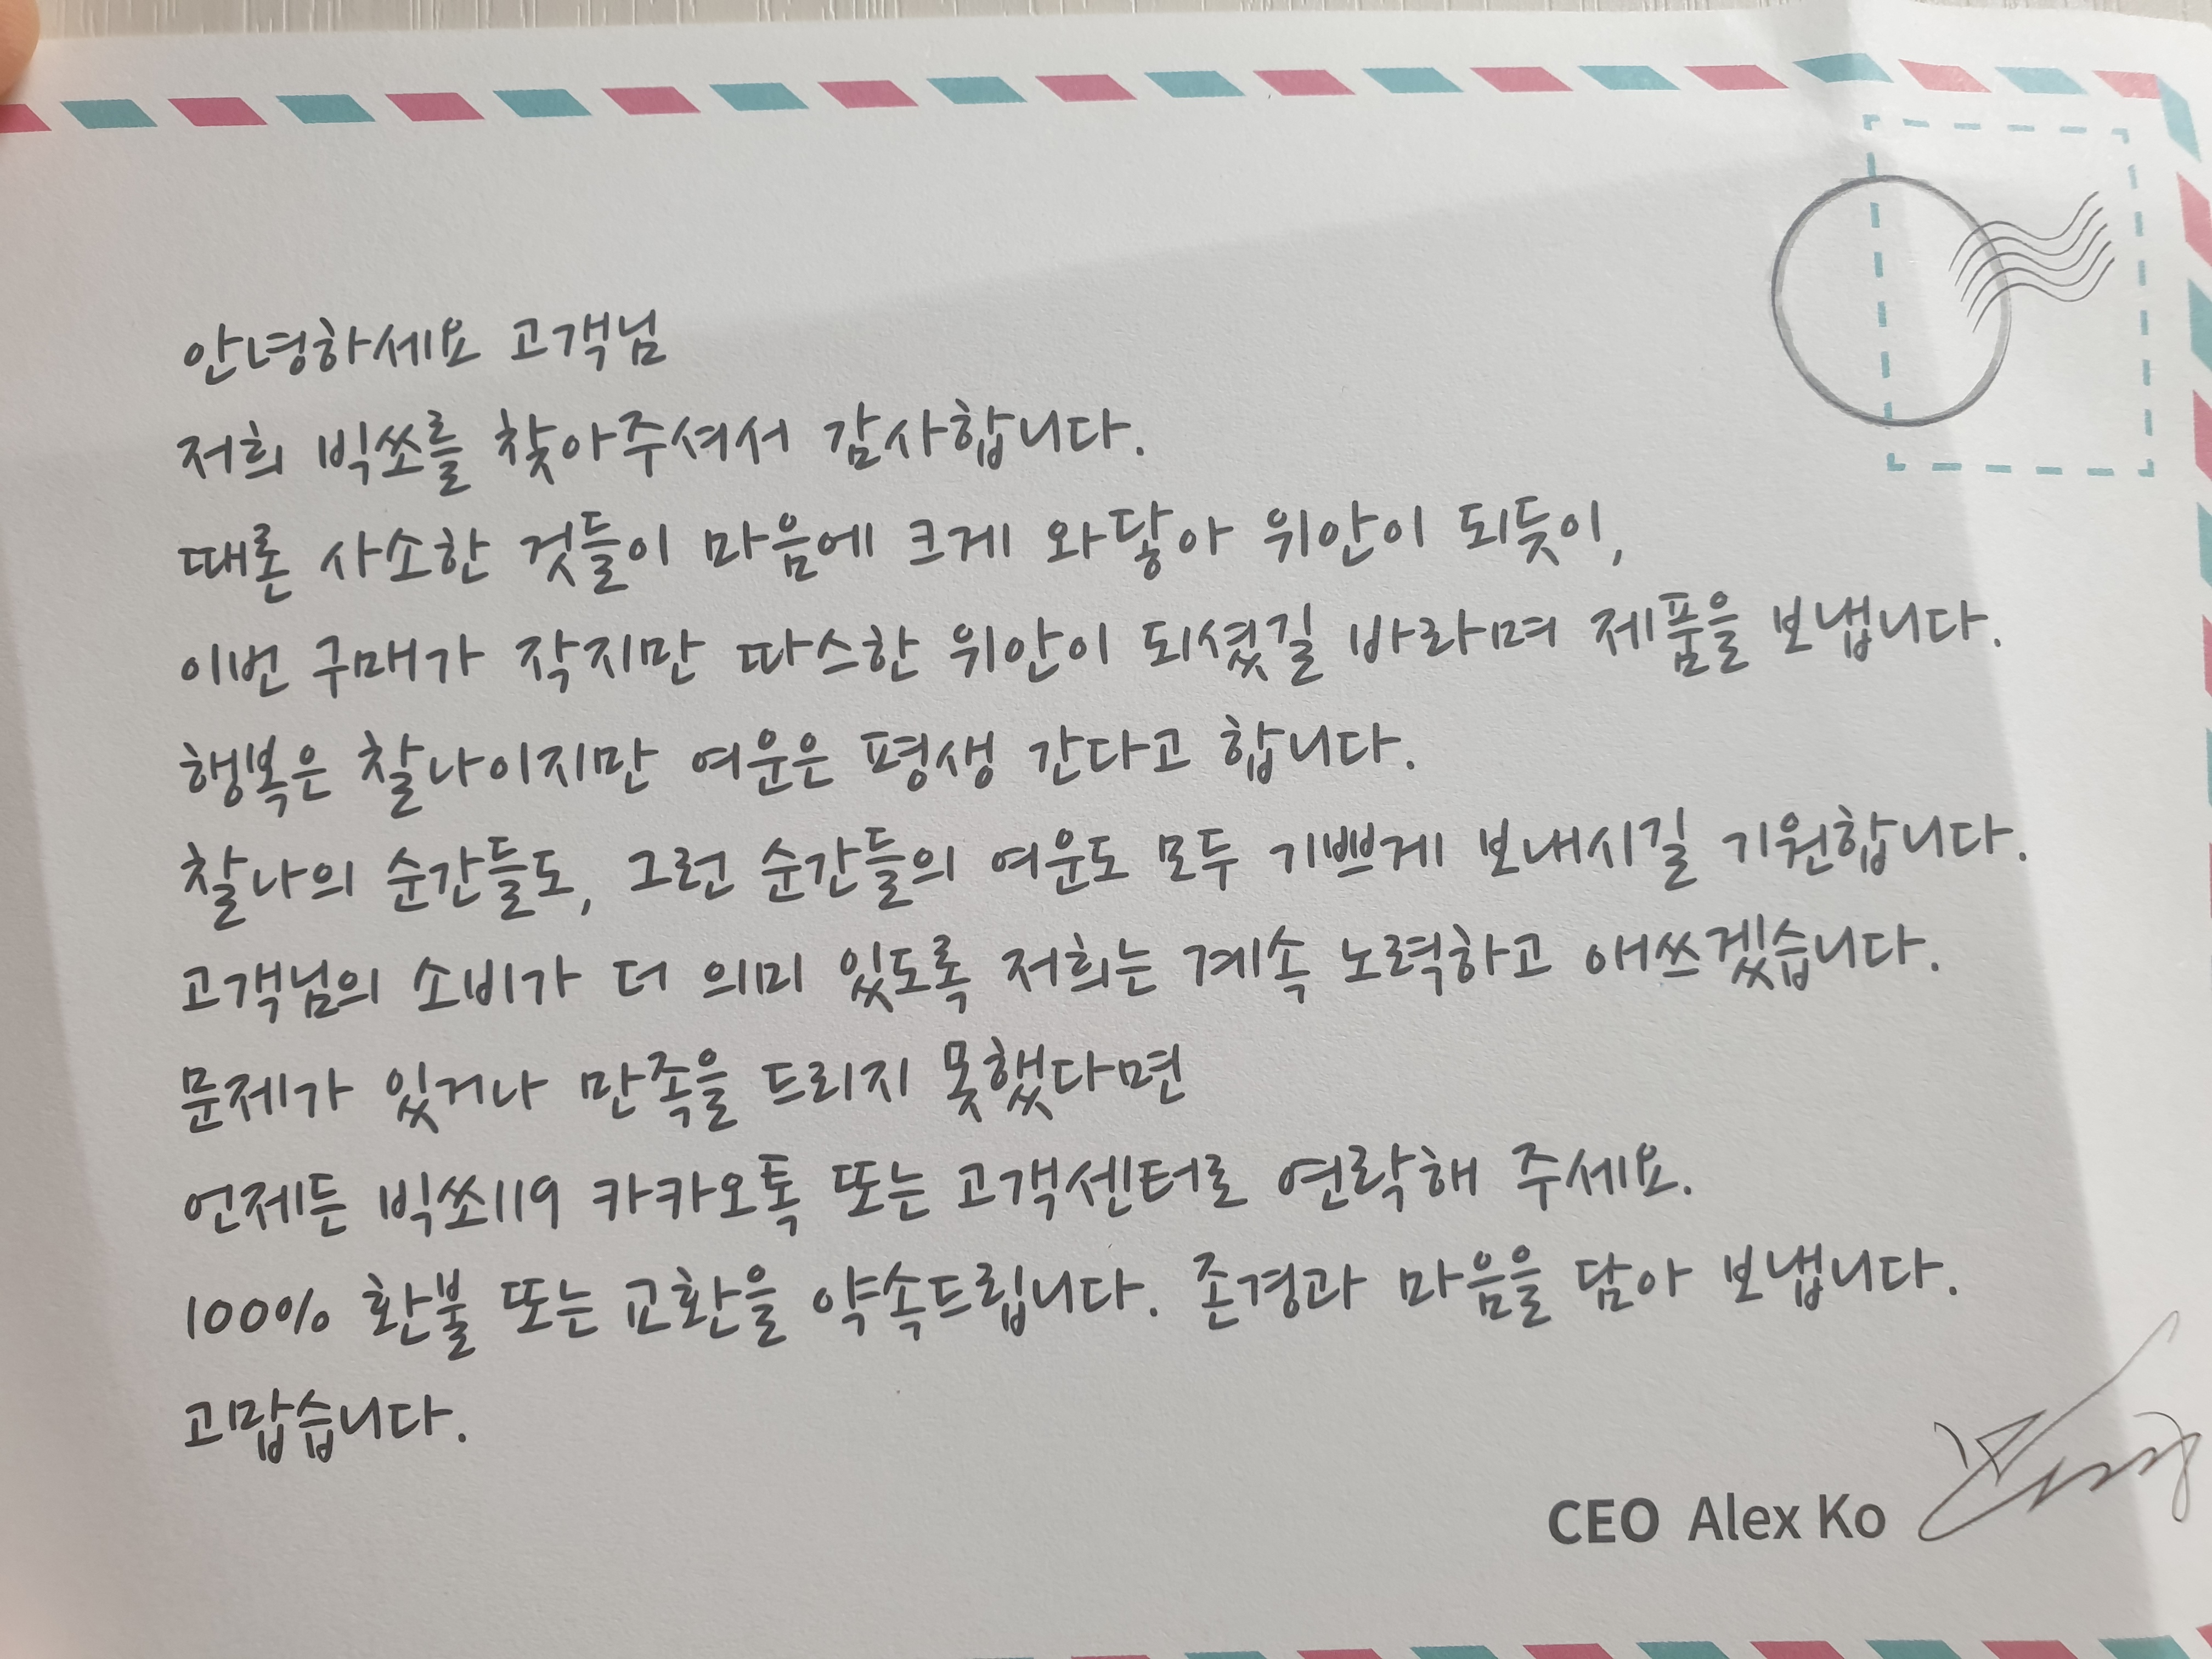 안녕하세요 고객님
저희 빅쏘를 찾아주셔서 감사합니다.
때론 사소한 것들이 마음에 크게 와닿아 위안이 되듯이,
이번 구매가 작지만 따스한 위안이 되셨길 바라며 제품을 보냅니다.
행복은 찰나이지만 여운은 평생 간다고 합니다.
찰나의 순간들도, 그런 순간들의 여운도 모두 기쁘게 보내시길 기원합니다.
고객님의 소비가 더 의미 있도록 저희는 계속 노력하고 애쓰겠습니다.
문제가 있거나 만족을 드리지 못했다면
언제든 빅쏘119 카카오톡 또는 고객센터로 연락해 주세요.
100% 환불 또는 교환을 약속드립니다. 존경과 마음을 담아 보냅니다.
고맙습니다.
CEO Alex Ko